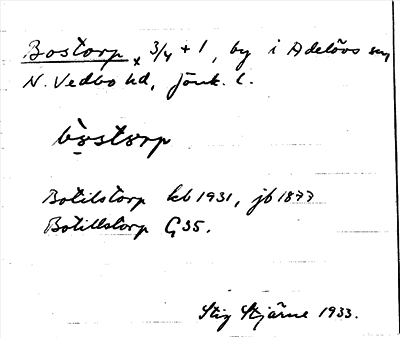 Bostorp × 3/4 + 1, by i Adelövs sn
N. Vedbo hd, Jönk. l.
bostorp
Botilstorp kb 1931, jb 1877
Botillstorp G 35.
Stig Stjärne 1933.